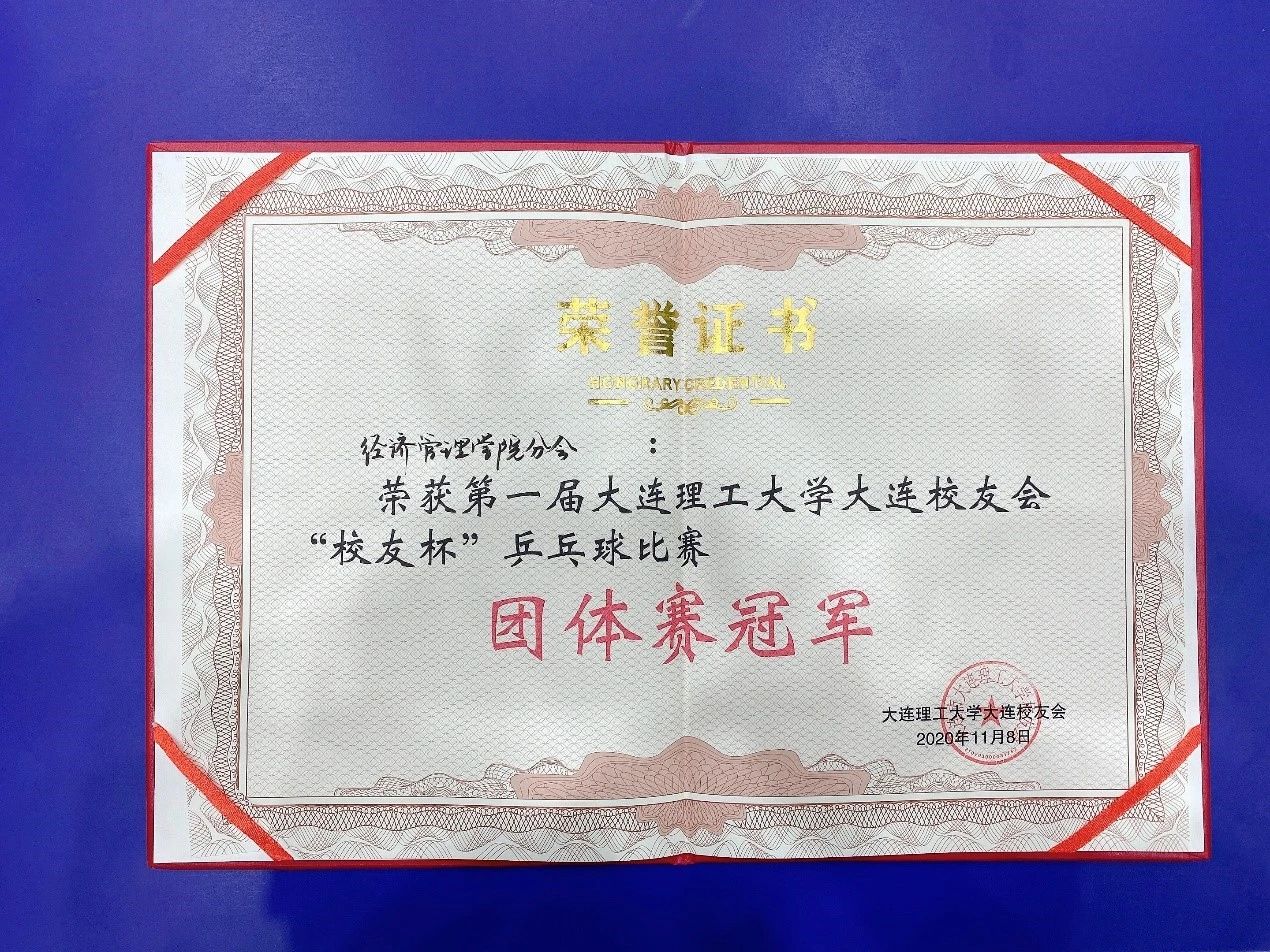 荣誉证书
HONORARY CREDENTIAL
经济管理学院分会：
荣获第一届大连理工大学大连校友会
“校友杯”乒乓球比赛
团体赛冠军
大连理工大学大连校友会
2020年11月8日